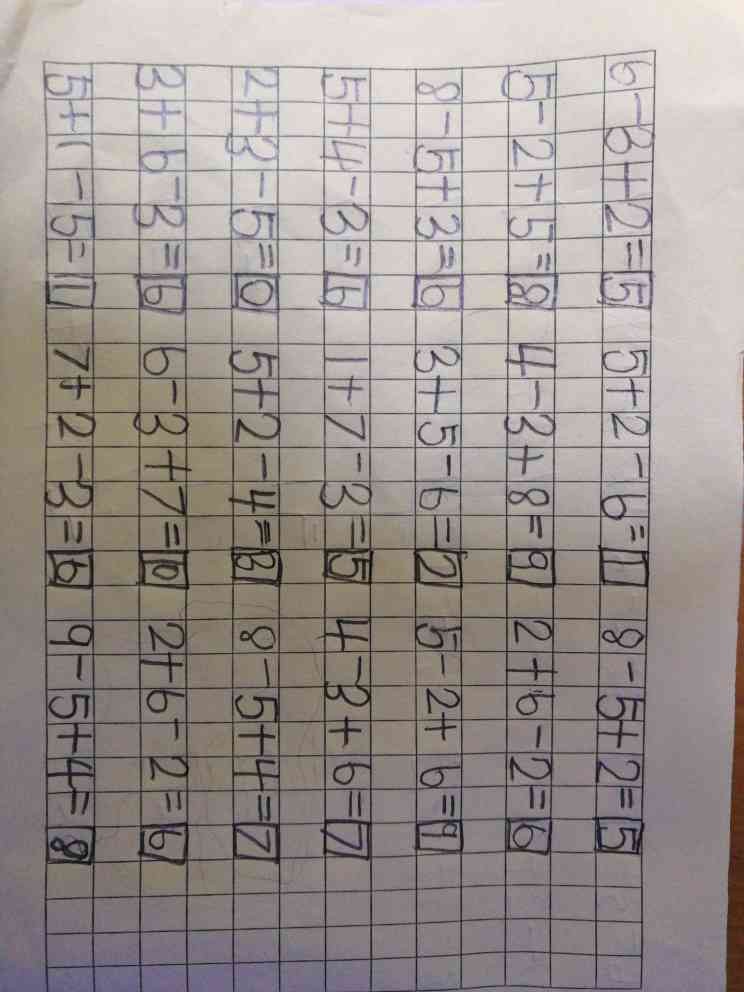 6-3+2=5 5+2-6=1 8-5+2=5
5-2+5=8 4-3+8=9 2+6-2=6
8-5+3=6 3+5-6=2 5-2+6=9
5+4-3=6 1+7-3=5 4-3+6=7
2+3-5=0 5+2-4=3 8-5+4=7
3+6-3=6 6-3+7=10 2+6-2=6
5+1-5=1 7+2-3=6 9-5+4=8